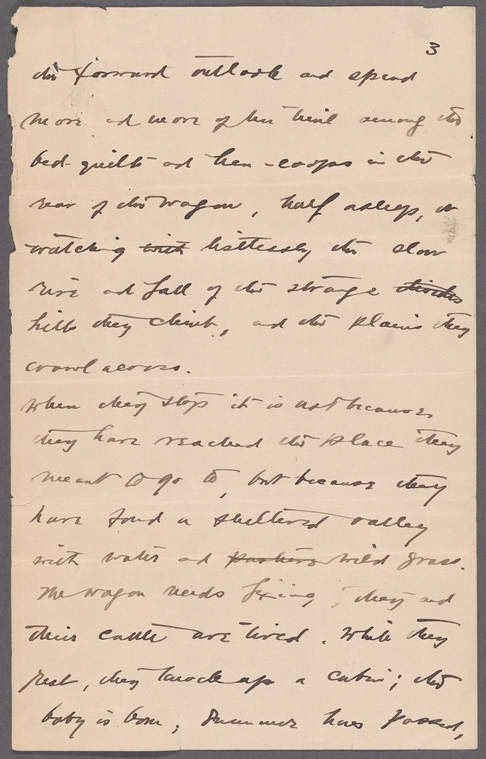 3
the forward outlook and spend
more and more of her time among the
bed-quilts and hen-coops in the
rear of the wagon, half asleep, or
watching with listlessly the slow
rise and fall of the strange divides
hills they climb, and the plains they
crawl across.
When they stop it is not because
they have reached the place they
meant to go to, but because they
have found a sheltered valley
with water and pasture wild grass.
The wagon needs fixing, they and
their cattle are tired. While they
rest, they knock up a cabin; the
baby is born; summer has passed,